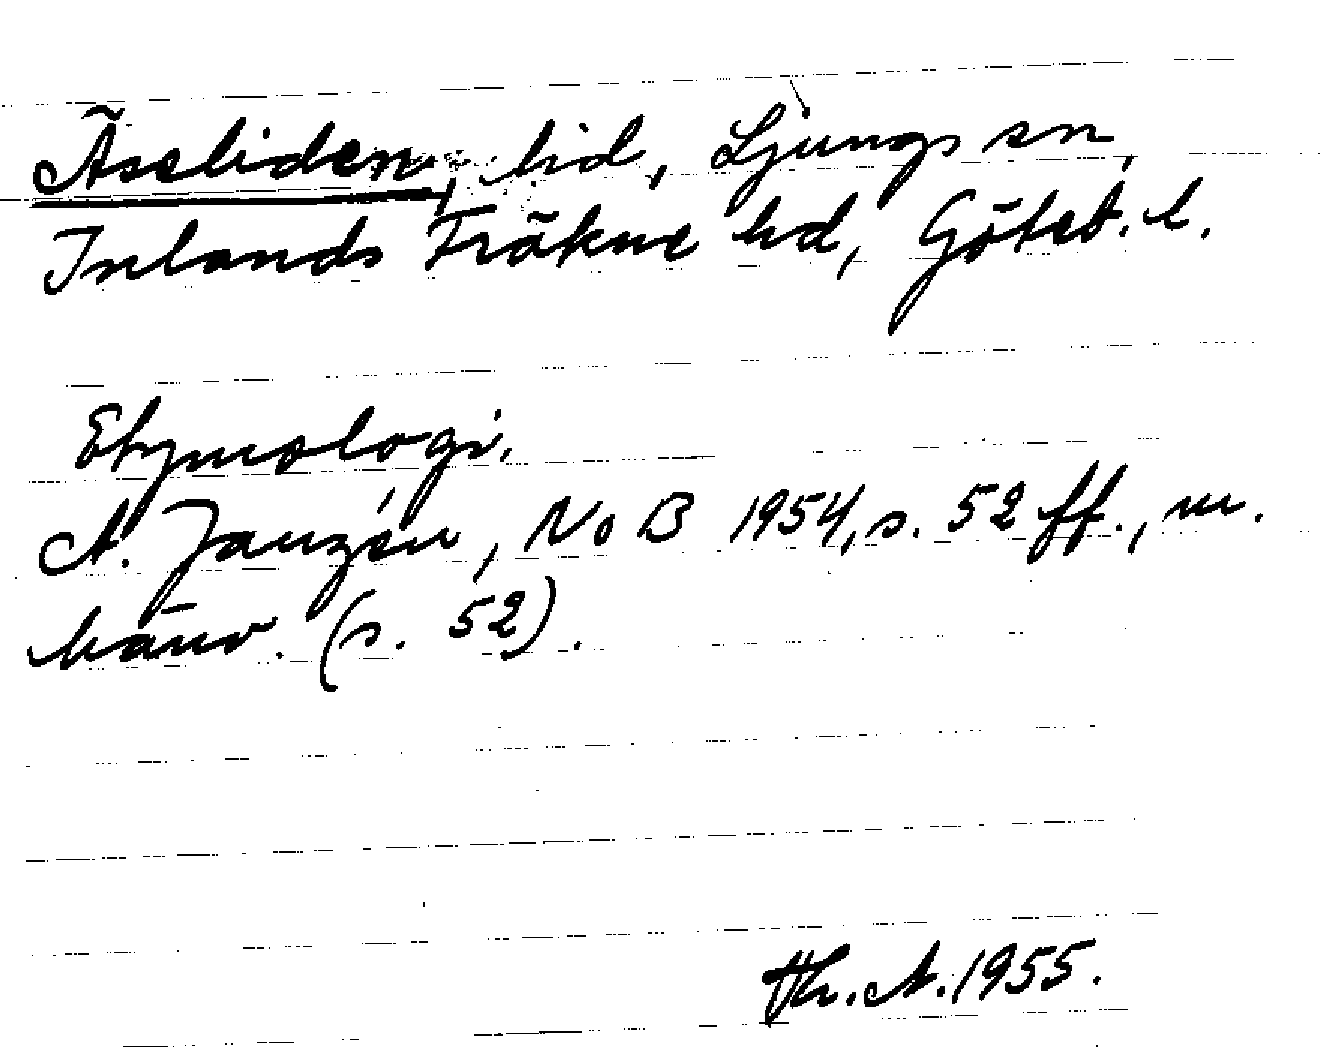 Äseliden, lid, Ljungs sn,
Inlands Fräkne hd, Göteb. l.
Etymologi.
A. Janzén, NoB 1954, s. 52 ff., m.
hänv. (s. 52).
Th. A. 1955.